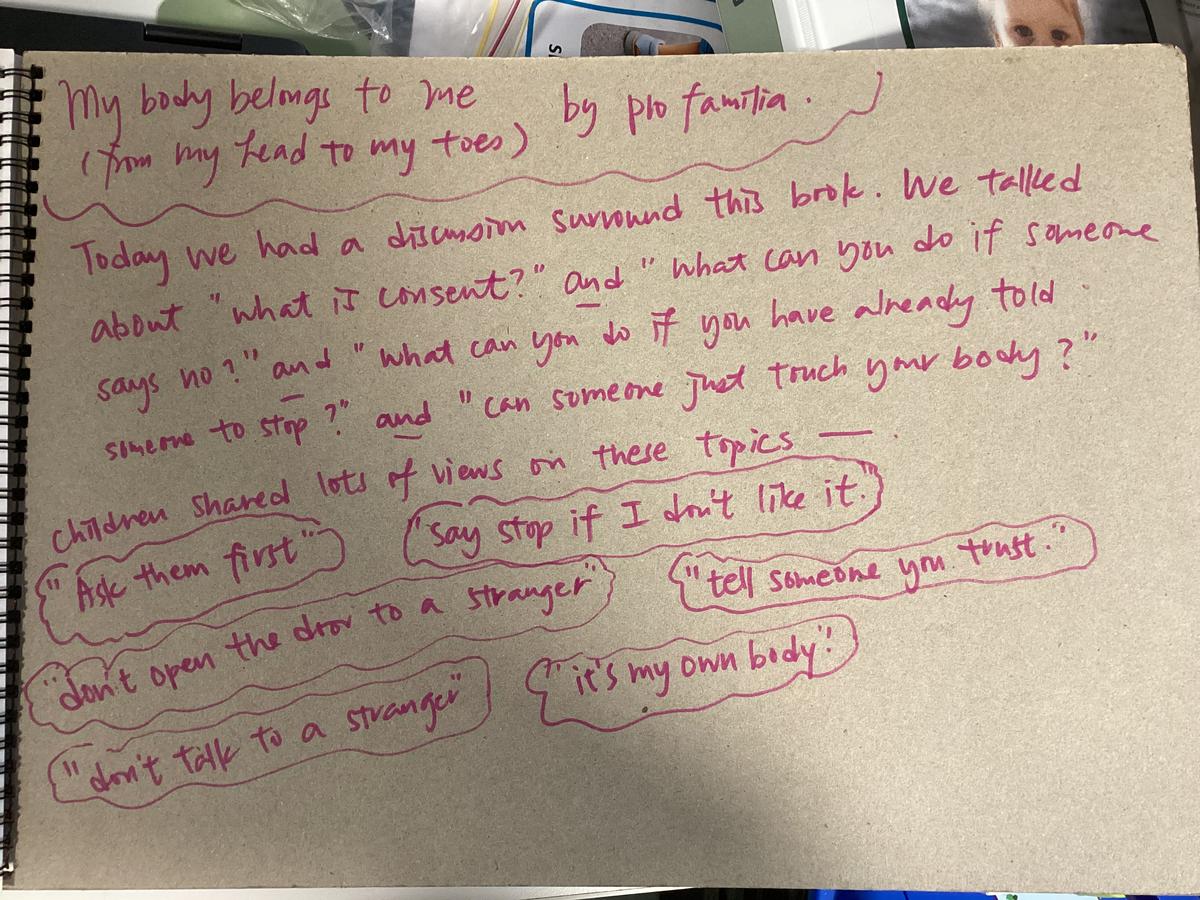 My body belongs to me by pro familia.
(from my head to my toes)
Today we had a discussion surround this book. We talked
about "what is consent?" and "what can you do if someone
says no?" and "what can you do if you have already told
someone to stop?" and "can someone just touch your body?"
children shared lots of views on these topics — .
"Ask them first" "say stop if I don't like it."
"don't open the door to a stranger" "tell someone you trust."
"don't talk to a stranger" "it's my own body".